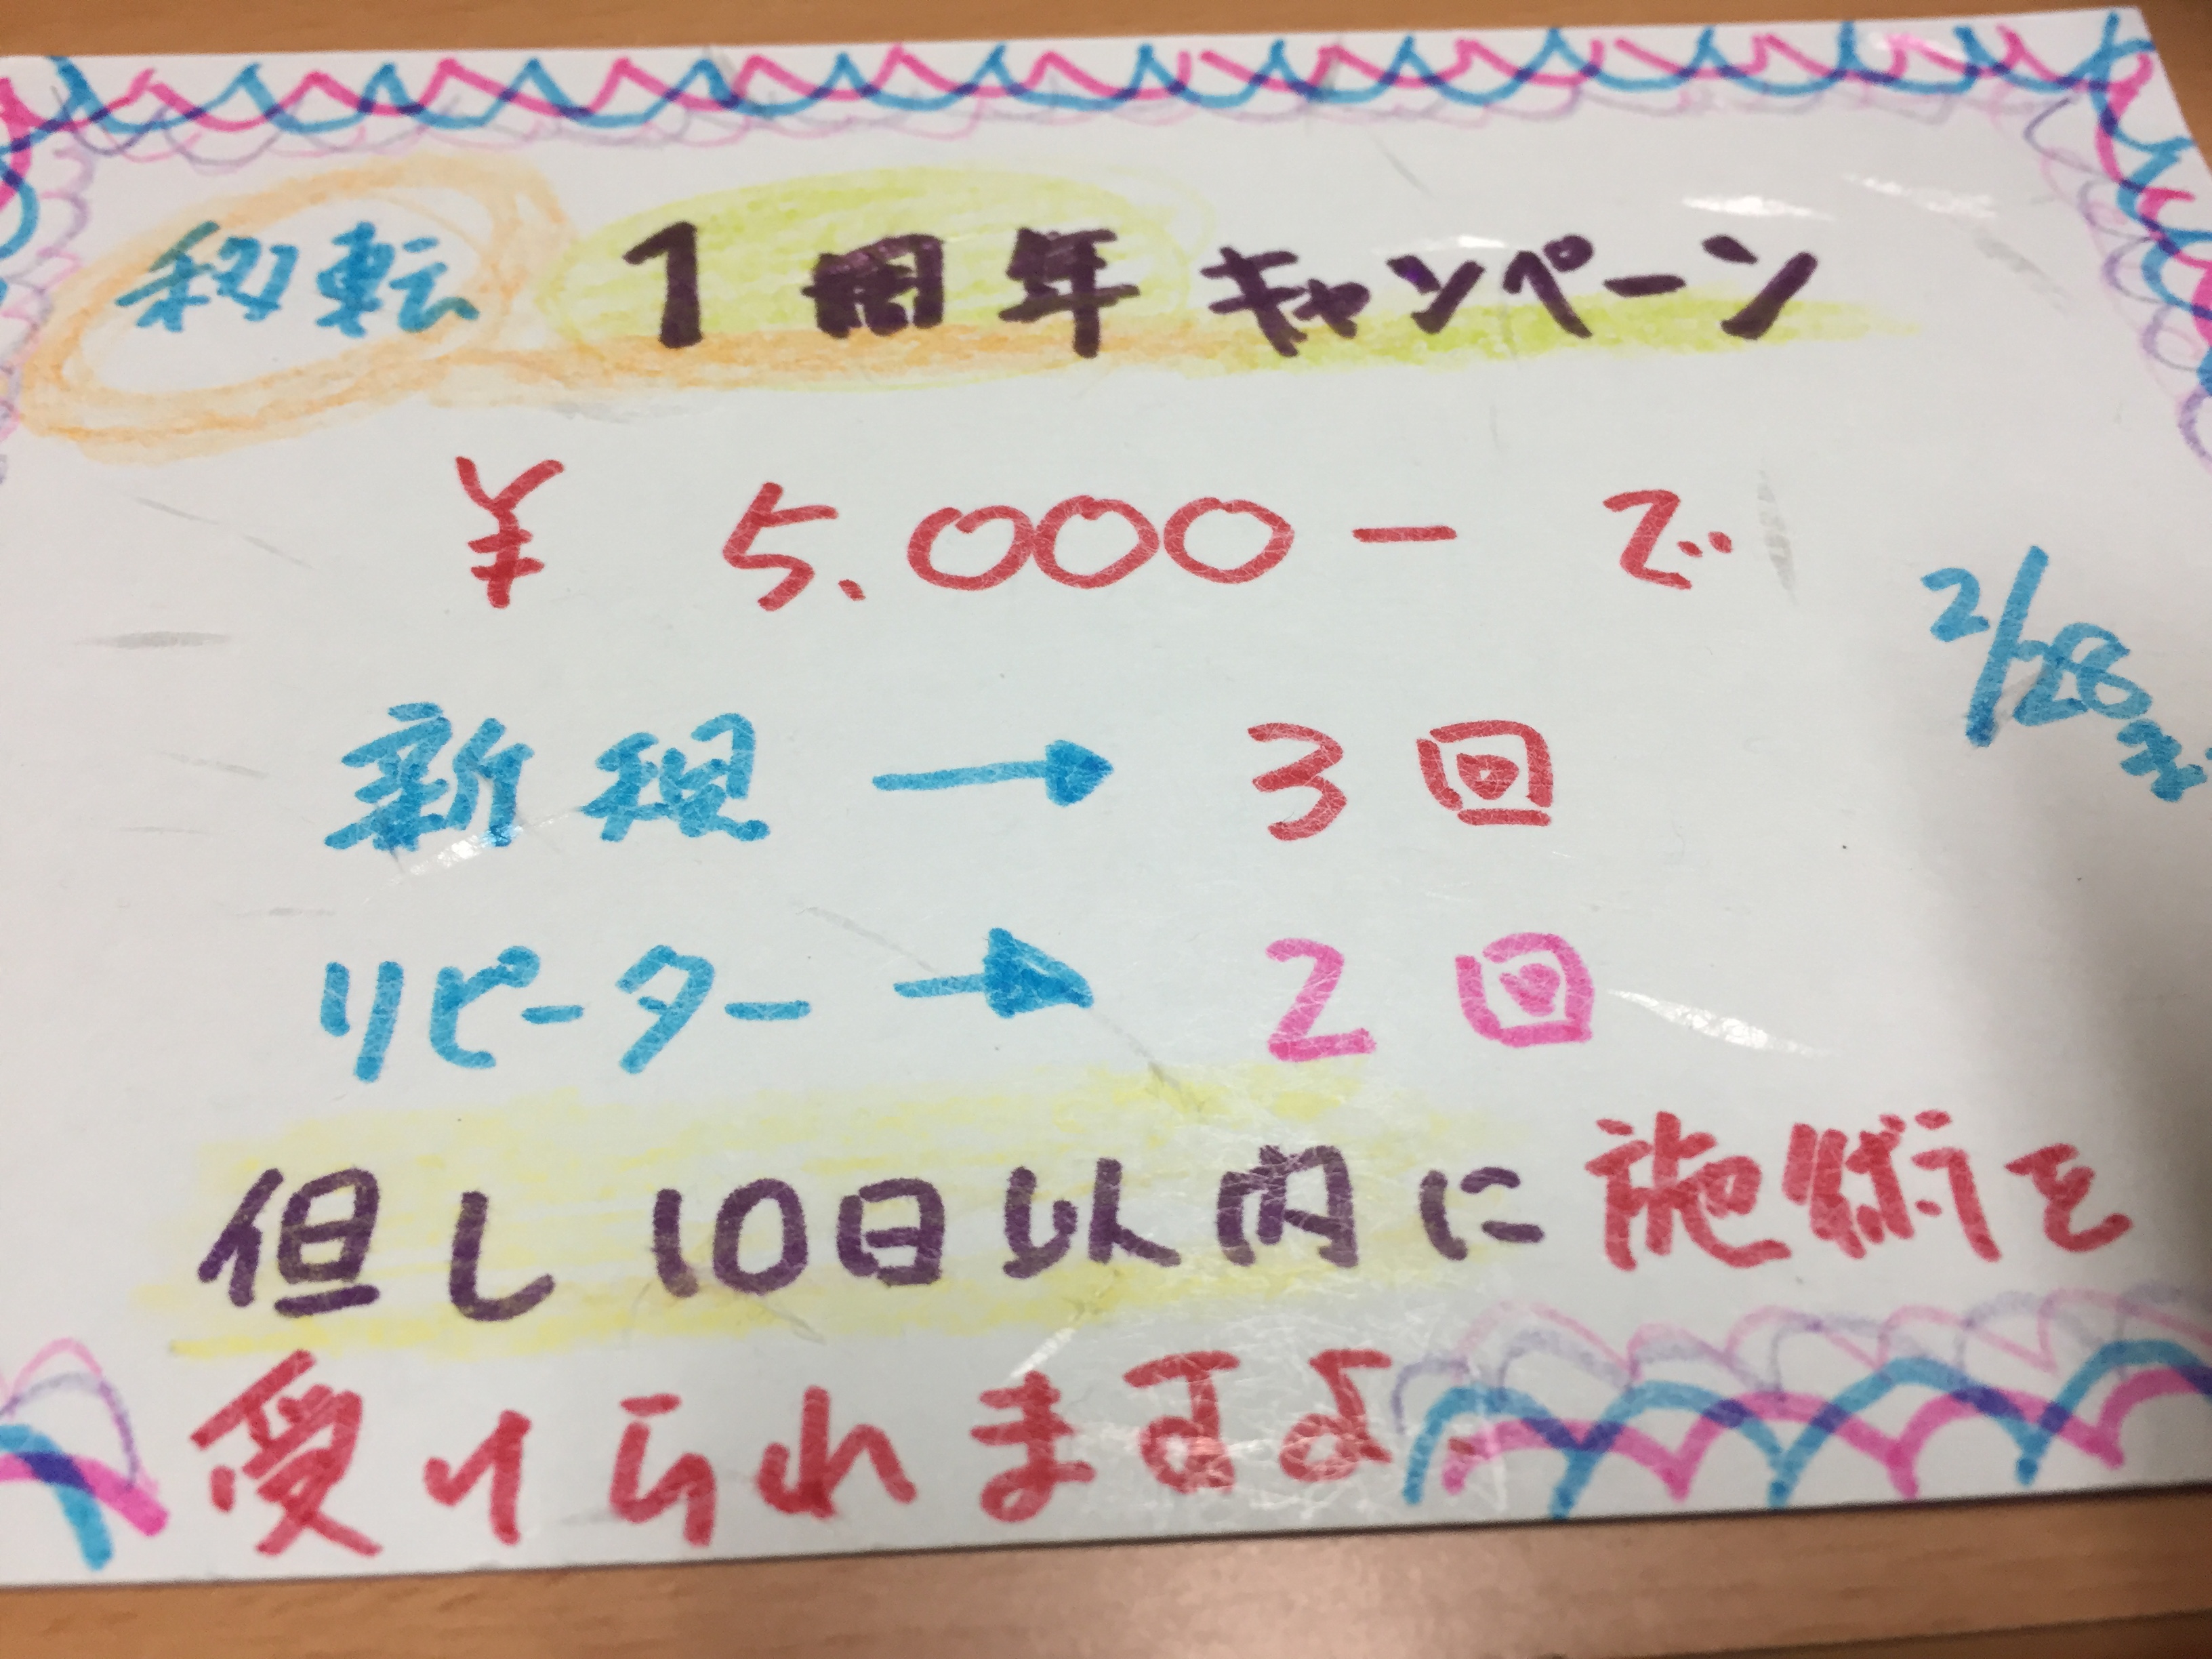 移転 1周年キャンペーン
¥ 5,000ー で
2/28まで
新規 → 3回
リピーター → 2回
但し10日以内に施術を
受けられますよ